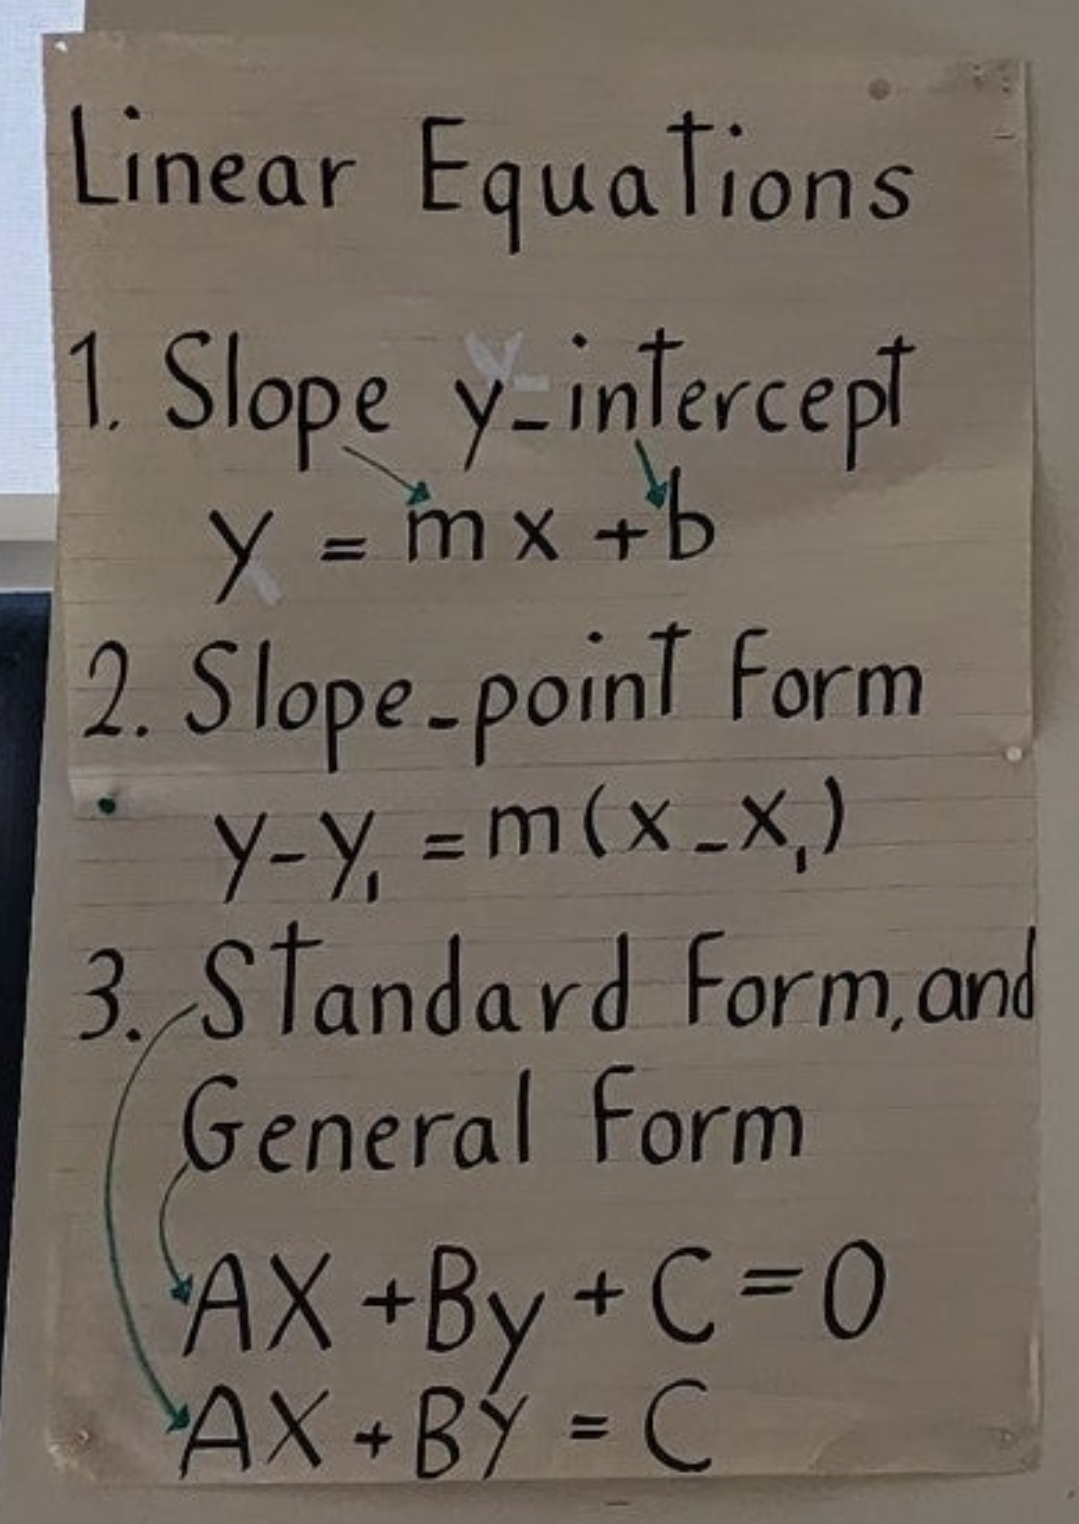 Linear Equations
1. Slope y-intercept
y = mx + b
2. Slope-point Form
y-y₁ = m(x-x₁)
3. Standard Form, and
General Form
AX + By + C = 0
AX + BY = C